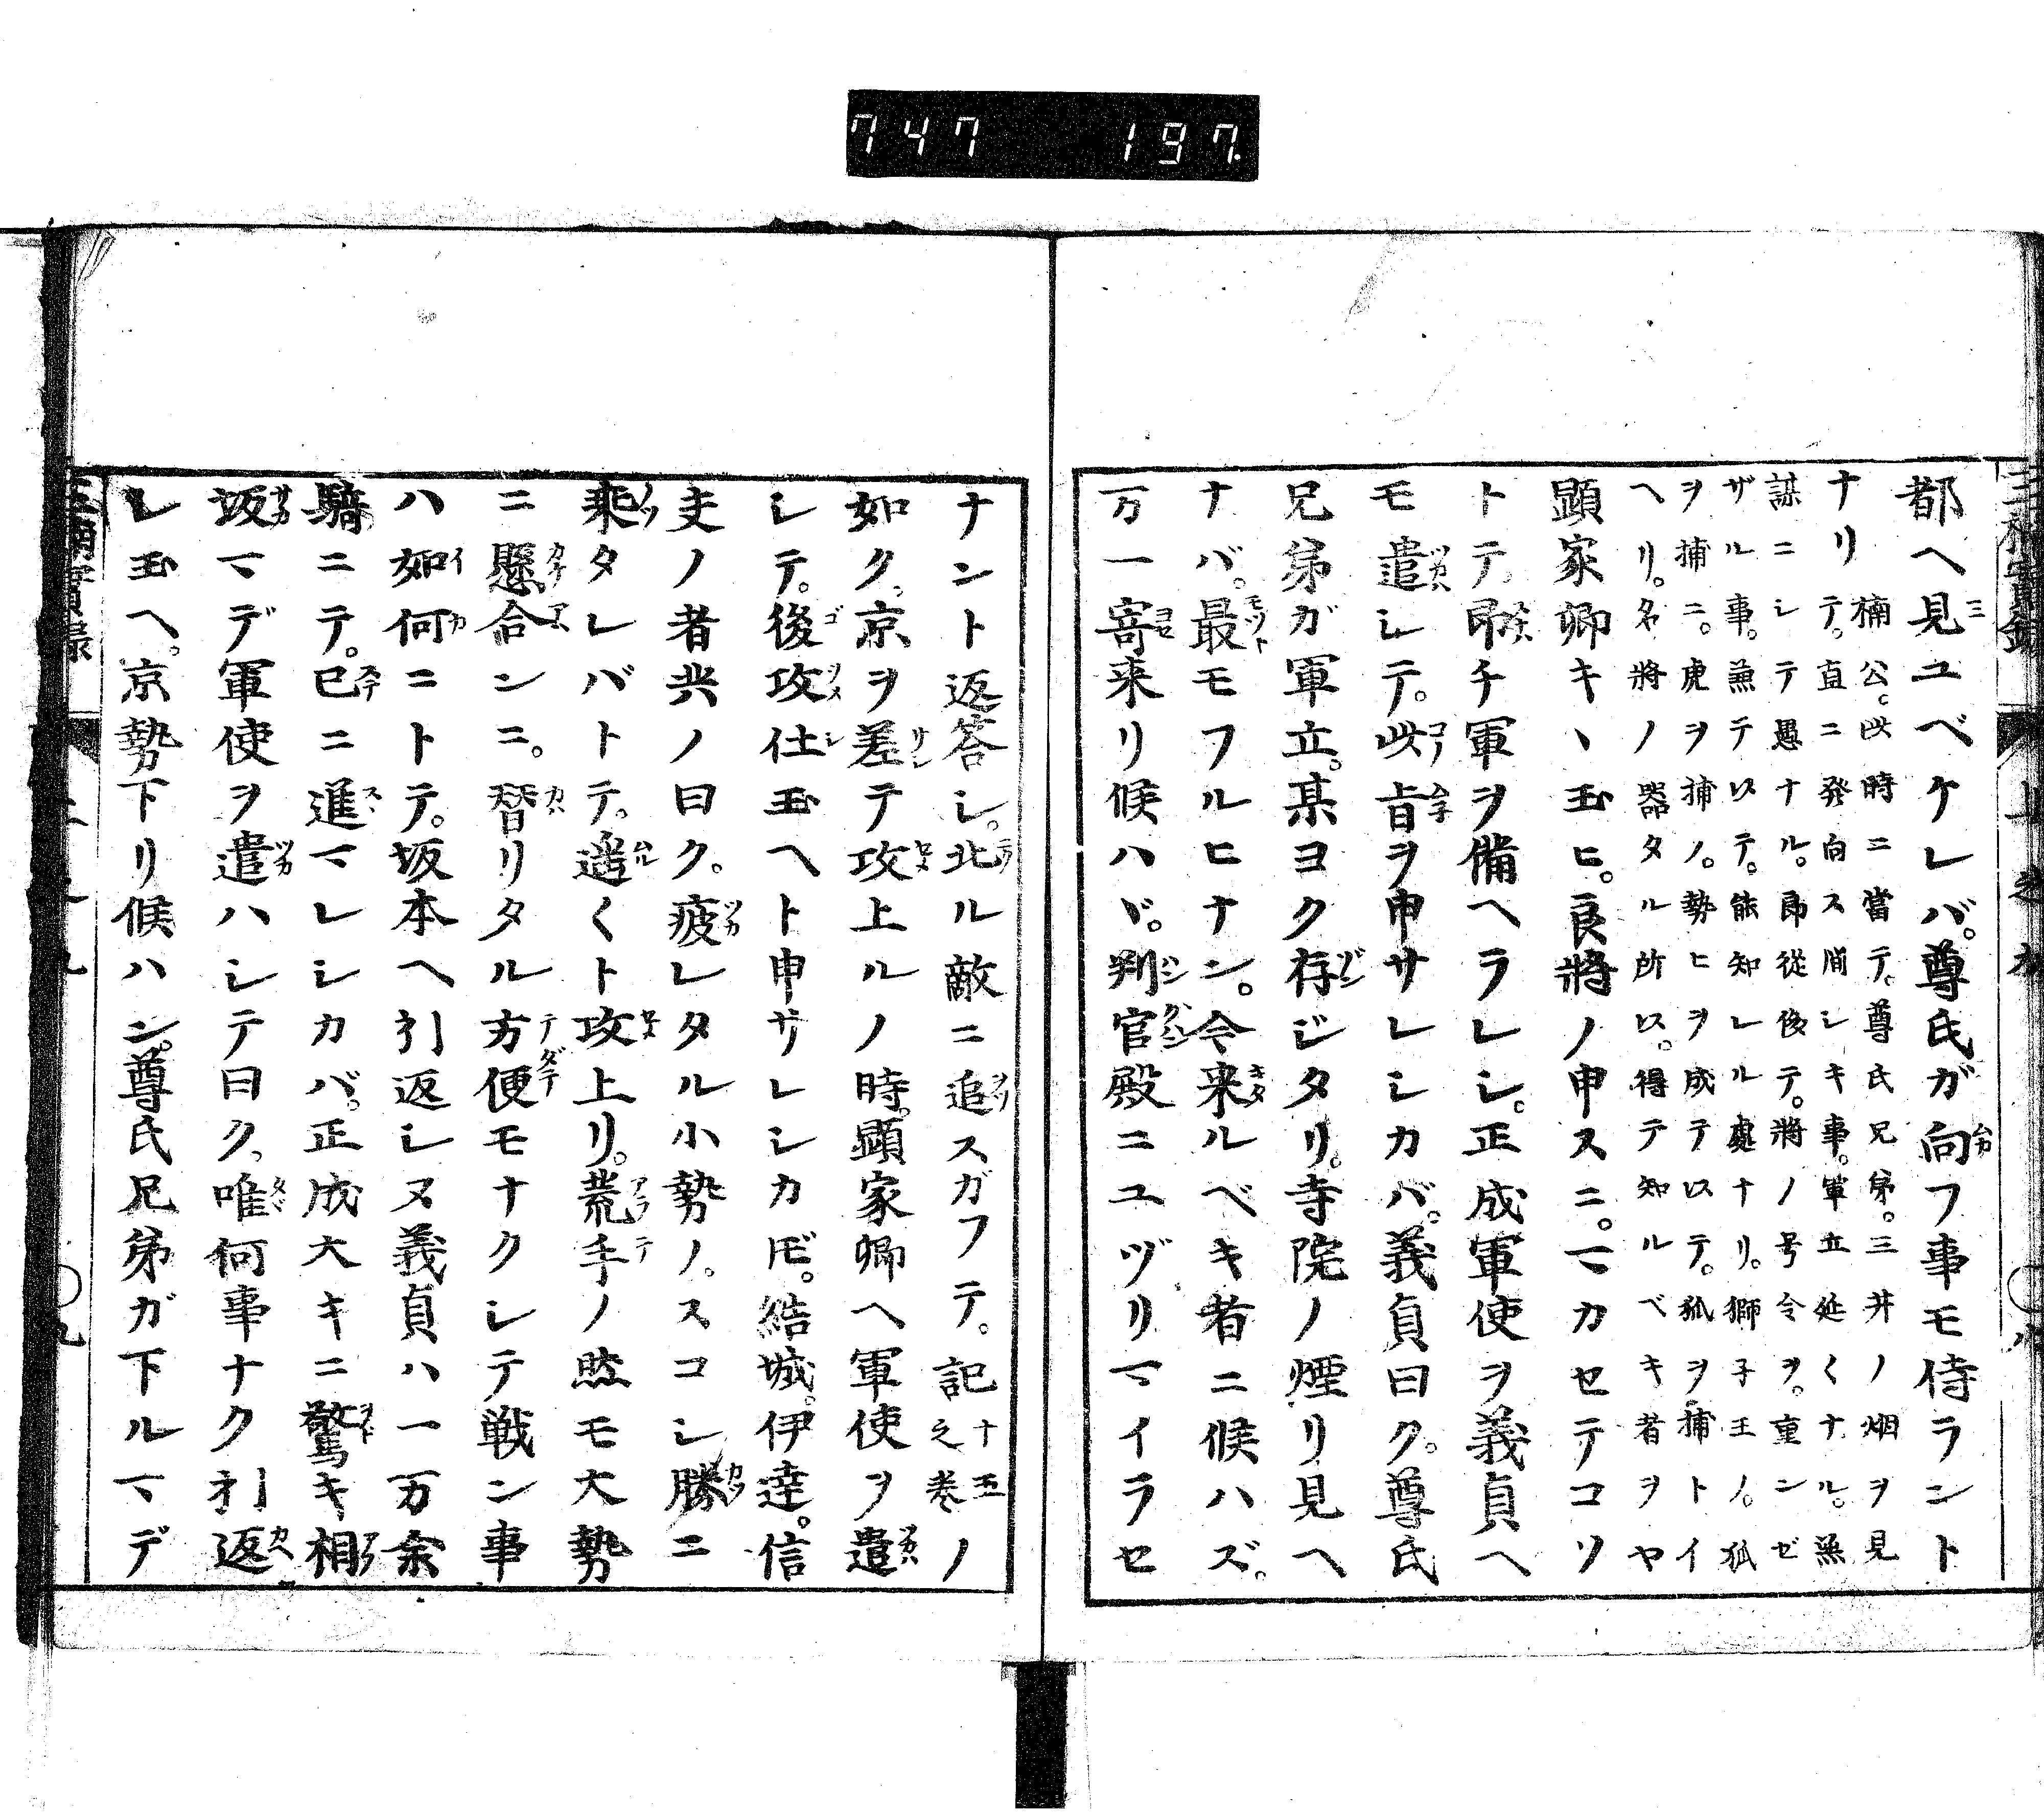 747 197.
都ヘ見ユベケレバ。尊氏ガ向フ事モ侍ラント
ナリ
楠公。此時ニ當テ。尊氏兄弟。三井ノ烟ヲ見
テ。直ニ発向ス間シキ事。軍立延〱ナル。無
謀ニシテ愚ナル。郎從後テ。將ノ号令ヲ。重ンゼ
ザル事。兼テ以テ。能知レル處ナリ。獅子王ノ。狐
ヲ捕ニ。虎ヲ捕ノ。勢ヒヲ成テ以テ。狐ヲ捕トイ
ヘリ。名將ノ器タル所以。得テ知ルベキ者ヲヤ
顕家卿キヽ玉ヒ。良將ノ申スニ。マカセテコソ
トテ。即チ軍ヲ備ヘラレシ。正成軍使ヲ義貞ヘ
モ遣シテ。此旨ヲ申サレシカバ。義貞曰ク。尊氏
兄弟ガ軍立。某ヨク存ジタリ。寺院ノ煙リ見ヘ
ナバ。最モフルヒナン。今来ルベキ者ニ候ハズ。
万一寄来リ候ハヾ。判官殿ニユヅリマイラセ
ナント返答シ。北ル敵ニ追スガフテ。記十五之巻ノ
如ク。京ヲ差テ攻上ルノ時。顕家卿ヘ軍使ヲ遣
シテ。後攻仕玉ヘト申サレシカ𪜈。結城。伊達。信
夫ノ者共ノ曰ク。疲レタル小勢ノ。スコシ勝ニ
乘タレバトテ。遥〱ト攻上リ。荒手ノ然モ大勢
ニ懸合ンニ。替リタル方便モナクシテ戦ン事
ハ如何ニトテ。坂本ヘ引返シヌ義貞ハ一万余
騎ニテ。已ニ進マレシカバ。正成大キニ驚キ相
坂マデ軍使ヲ遣ハシテ曰ク。唯何事ナク引返
レ玉ヘ。京勢下リ候ハン。尊氏兄弟ガ下ルマデ